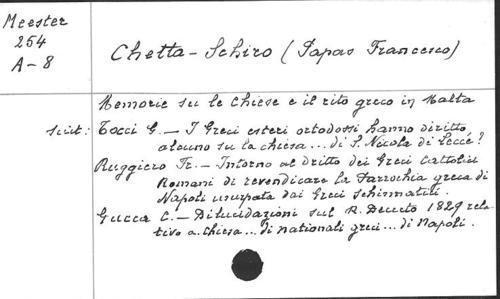 Meester
254
A-8
Chetta-Schiro (Papas Francesco)
Memorie su le Chiese e il rito greco in Malta
Scrit: Tocci G. — I Greci esteri ortodossi hanno diritto
alcuno su la chiesa... di S. Nicola di Lecce?
Ruggiero Fr. — Intorno al dritto dei Greci Cattolici
Romani di revendicare la Parrochia greca di
Napoli usurpata dai Greci schismatici.
Gucca C. — Dilucidazioni sul R. Decreto 1829 rela
tivo a chiesa... di nationali greci... di Napoli.